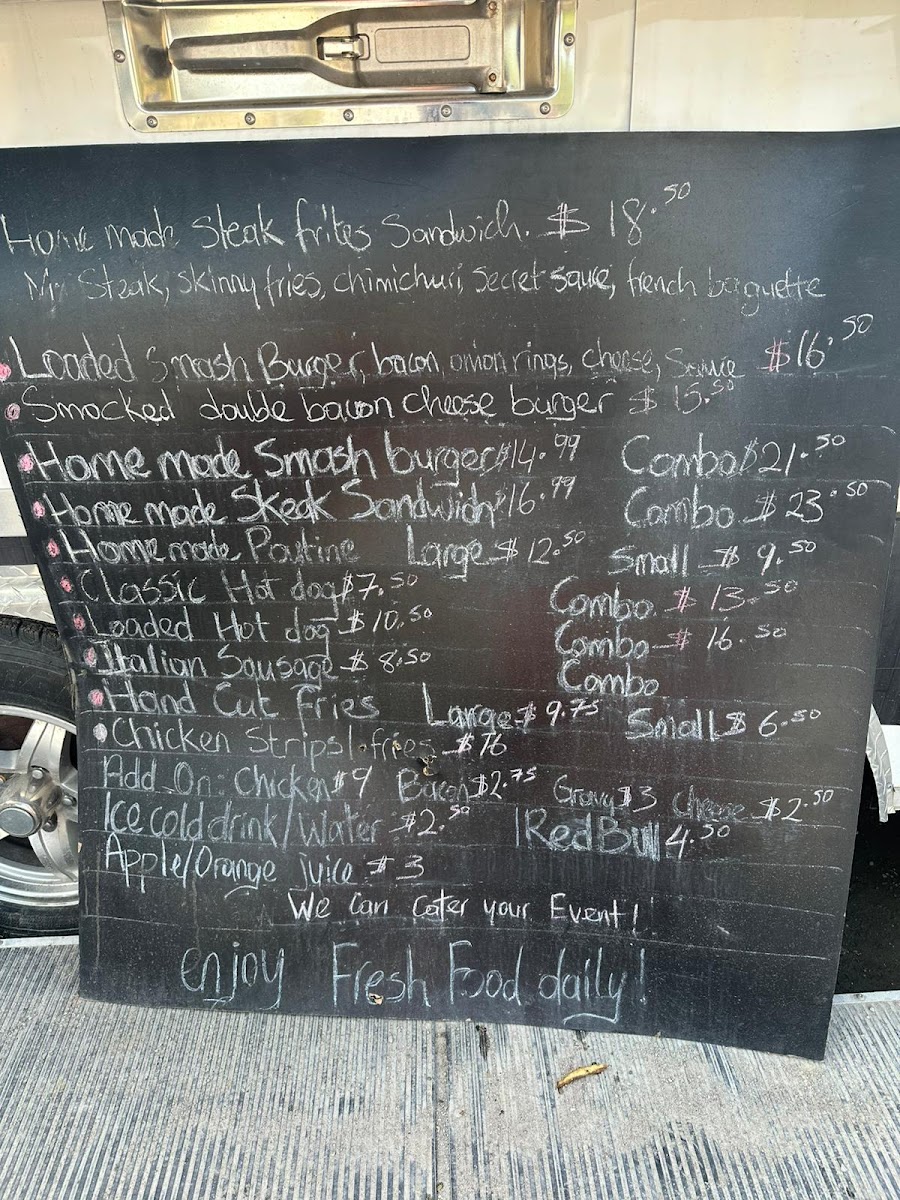 Home made Steak frites Sandwich. $ 18.50
Steak, skinny fries, chimichuri, secret sauce, french baguette
Loaded Smash Burger, bacon, onion rings, cheese, Sauce $16.50
Smocked double bacon cheese burger $ 15.50
Home made Smash burger $14.99 Combo $21.50
Home made Steak Sandwich $16.99 Combo $ 23.50
Home made Poutine Large $ 12.50 Small $ 9.50
Classic Hot dog $7.50 Combo $ 13.50
Loaded Hot dog $ 10.50 Combo $ 16.50
Italian Sausage $ 8.50 Combo
Hand Cut Fries Large $ 9.75 Small $ 6.50
Chicken Strips fries $16
Add On: Chicken $9 Bacon $2.75 Gravy $3 Cheese $2.50
Ice cold drink/Water $2.50 Red Bull 4.50
Apple/Orange juice $3
We Can Cater your Event!
enjoy Fresh Food daily!